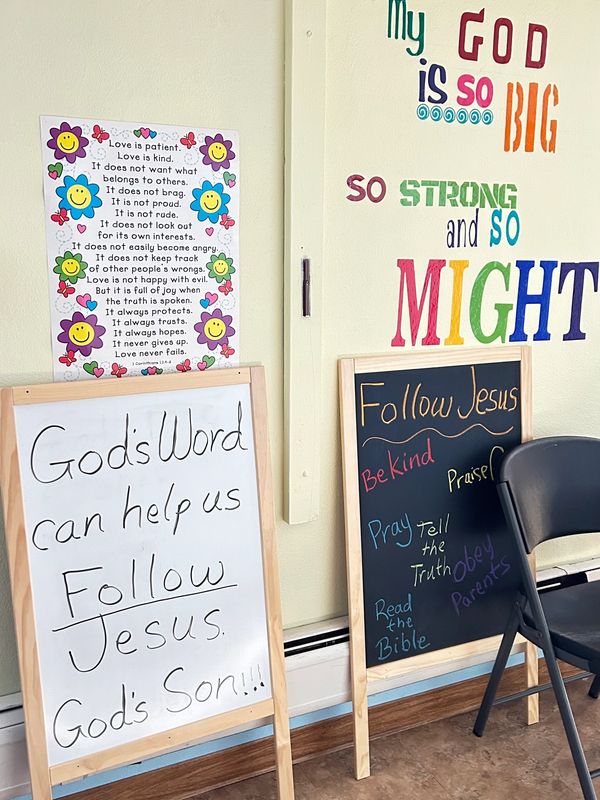 My GOD
is so
BIG
so STRONG
and so
MIGHT
Love is patient.
Love is kind.
It does not want what
belongs to others.
It does not brag.
It is not proud.
It is not rude.
It does not look out
for its own interests.
It does not easily become angry.
It does not keep track
of other people's wrongs.
Love is not happy with evil.
But it is full of joy when
the truth is spoken.
It always protects.
It always trusts.
It always hopes.
It never gives up.
Love never fails.
God's Word
can help us
Follow
Jesus.
God's Son!!!
Follow Jesus
Be Kind
Praise
Pray
Tell
the
Truth
Obey
Parents
Read
the
Bible